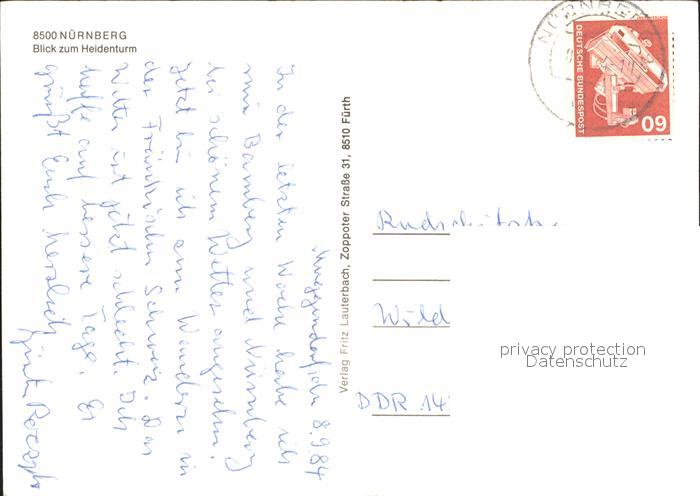 8500 NÜRNBERG
Blick zum Heidenturm
Muggendorf, den 8.9.84
In der letzten Woche habe ich
mir Bamberg und Nürnberg
bei schönem Wetter angesehn.
Jetzt bin ich am Wandern in
der Fränkischen Schweiz. Das
Wetter ist jetzt schlecht. Ich
hoffe auf bessere Tage. Es
grüßt Euch herzlich
Verlag Fritz Lauterbach, Zoppoter Straße 31, 8510 Fürth
NÜRNBERG
DEUTSCHE BUNDESPOST
60
Wild
DDR 14
privacy protection
Datenschutz